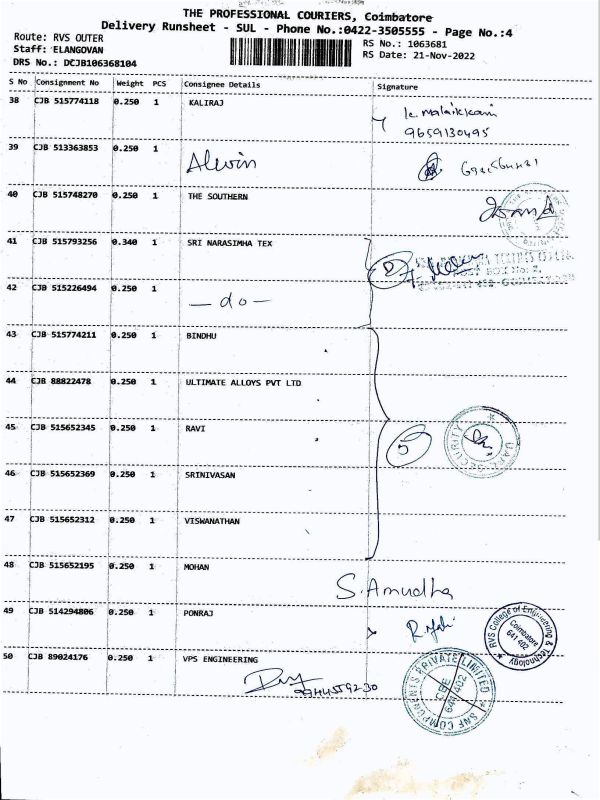 THE PROFESSIONAL COURIERS, Coimbatore
Delivery Runsheet - SUL - Phone No.:0422-3505555 - Page No.:4
Route: RVS OUTER
RS No.: 1063681
Staff: ELANGOVAN
RS Date: 21-Nov-2022
DRS No.: DCJB106368104
S No Consignment No Weight PCS Consignee Details Signature
38 CJB 515774118 0.250 1 KALIRAJ
9659130495
39 CJB 513363853 0.250 1 Alwin
40 CJB 515748270 0.250 1 THE SOUTHERN
41 CJB 515793256 0.340 1 SRI NARASIMHA TEX
2
42 CJB 515226494 0.250 1 — do —
43 CJB 515774211 0.250 1 BINDHU
44 CJB 88822478 0.250 1 ULTIMATE ALLOYS PVT LTD
45 CJB 515652345 0.250 1 RAVI
5
SECURITY
46 CJB 515652369 0.250 1 SRINIVASAN
47 CJB 515652312 0.250 1 VISWANATHAN
48 CJB 515652195 0.250 1 MOHAN
S. Amudha
49 CJB 514294806 0.250 1 PONRAJ
RVS College of Engineering & Technology
Coimbatore
641 402
50 CJB 89024176 0.250 1 VPS ENGINEERING
SNF COMPONENTS PRIVATE LIMITED
CBE
641 402